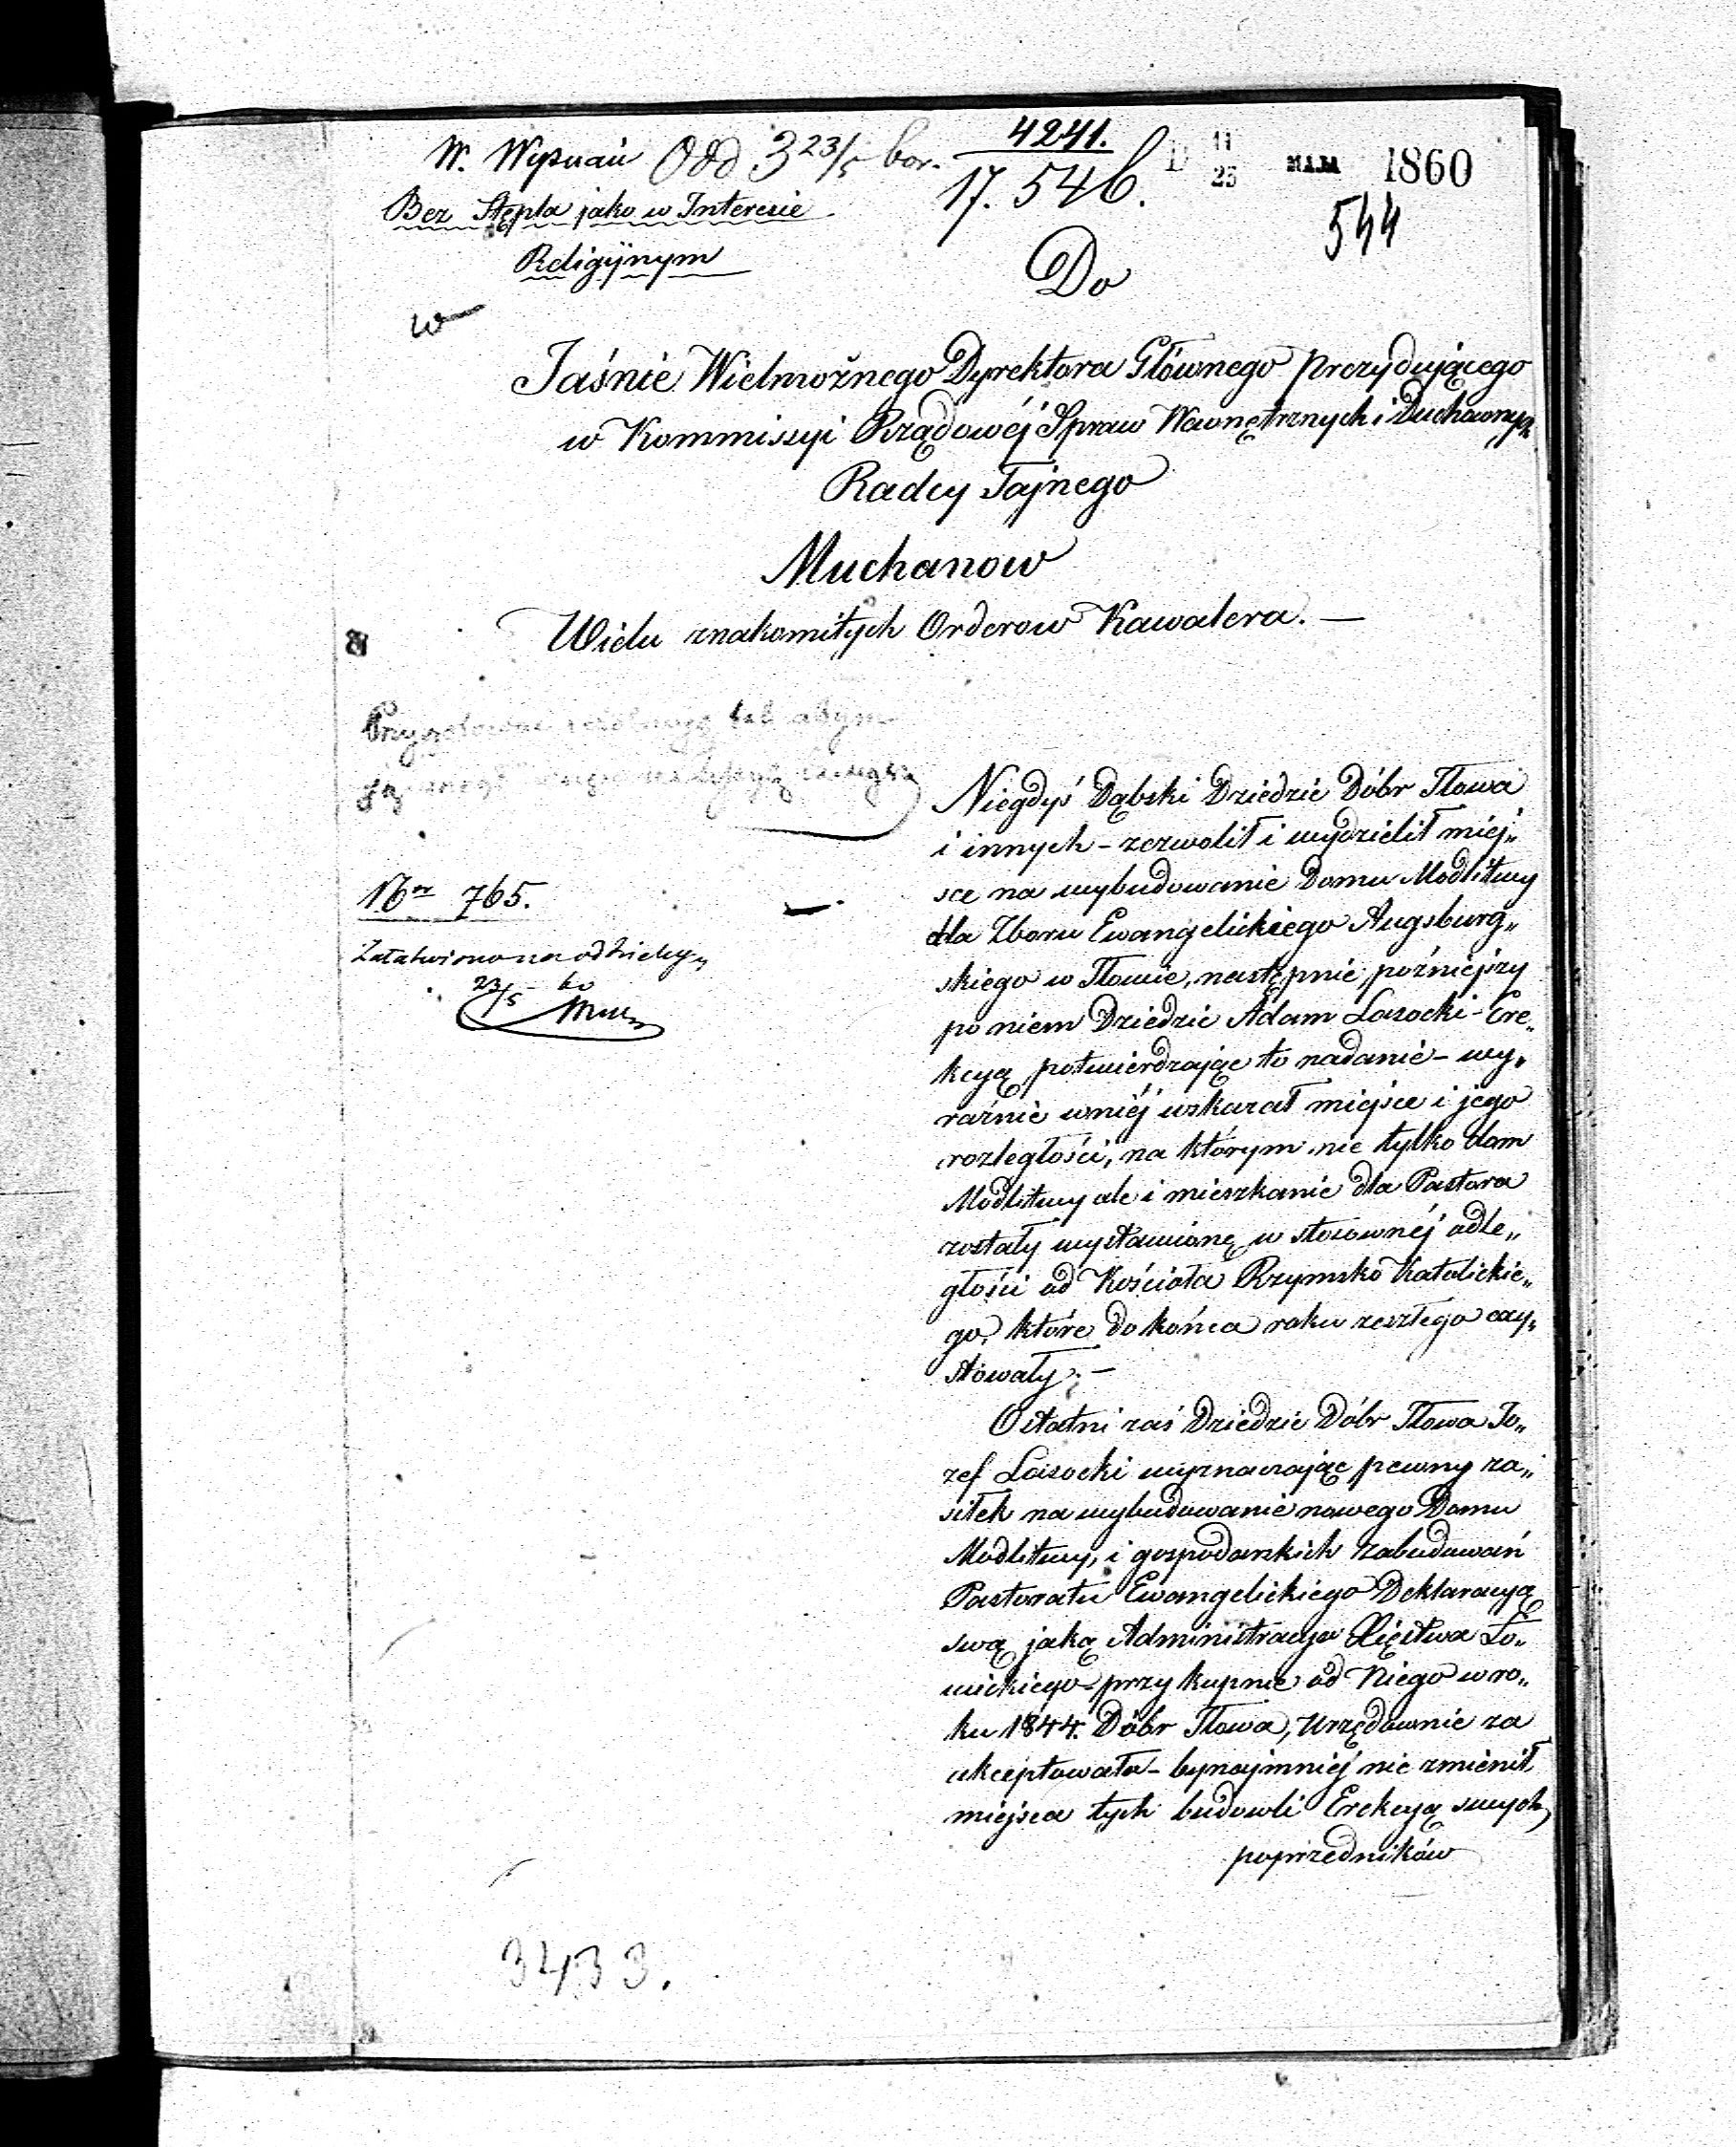 W. Wyznań Odd 3 23/5 bor.
4241.
17.546.
D 11/23 MAJA 1860
544
Bez Stępla jako w Interesie
Religijnym
Do
w
Jaśnie Wielmożnego Dyrektora Głównego Prezydującego
w Kommissyi Rządowéj Spraw Wewnętrznych i Duchownych
Radcy Tajnego
Muchanow
Wielu znakomitych Orderow Kawalera. —
Niegdyś Dąbski Dziedzic Dóbr Iłowa
i innych – zezwolił i wydzielił miej„
sce na wybudowanie Domu Modlitwy
dla Zboru Ewangelickiego Augsburg„
skiego w Iłowie, następnie późniejszy
po niem Dziedzic Adam Lasocki – Ere„
kcyą potwierdzając to nadanie – wy„
raźnie wniéj wskazał miejsce i jego
rozległości, na którym nie tylko dom
Modlitwy ale i mieszkanie dla Pastora
zostały wystawione w stosownéj odle„
głości od Kościoła Rzymsko Katolickie„
go, które do końca roku zeszłego exy„
stowały. —
Ostatni zaś Dziedzic Dóbr Iłowa Jó„
zef Lasocki wyznaczając pewny za„
siłek na wybudowanie nowego Domu
Modlitwy, i gospodarskich zabudowań
Pastoratu Ewangelickiego Deklaracyą
swą jaką Administracya Xięstwa Ło„
wickiego – przy kupnie od Niego w ro„
ku 1844. Dóbr Iłowa, Urzędownie za
akceptowała – bynajmniéj nie zmienił
miejsca tych budowli Erekcyą swych
poprzedników
Ner 765.
Załatwiono na oddzielnym
23/5 – 60
3433.